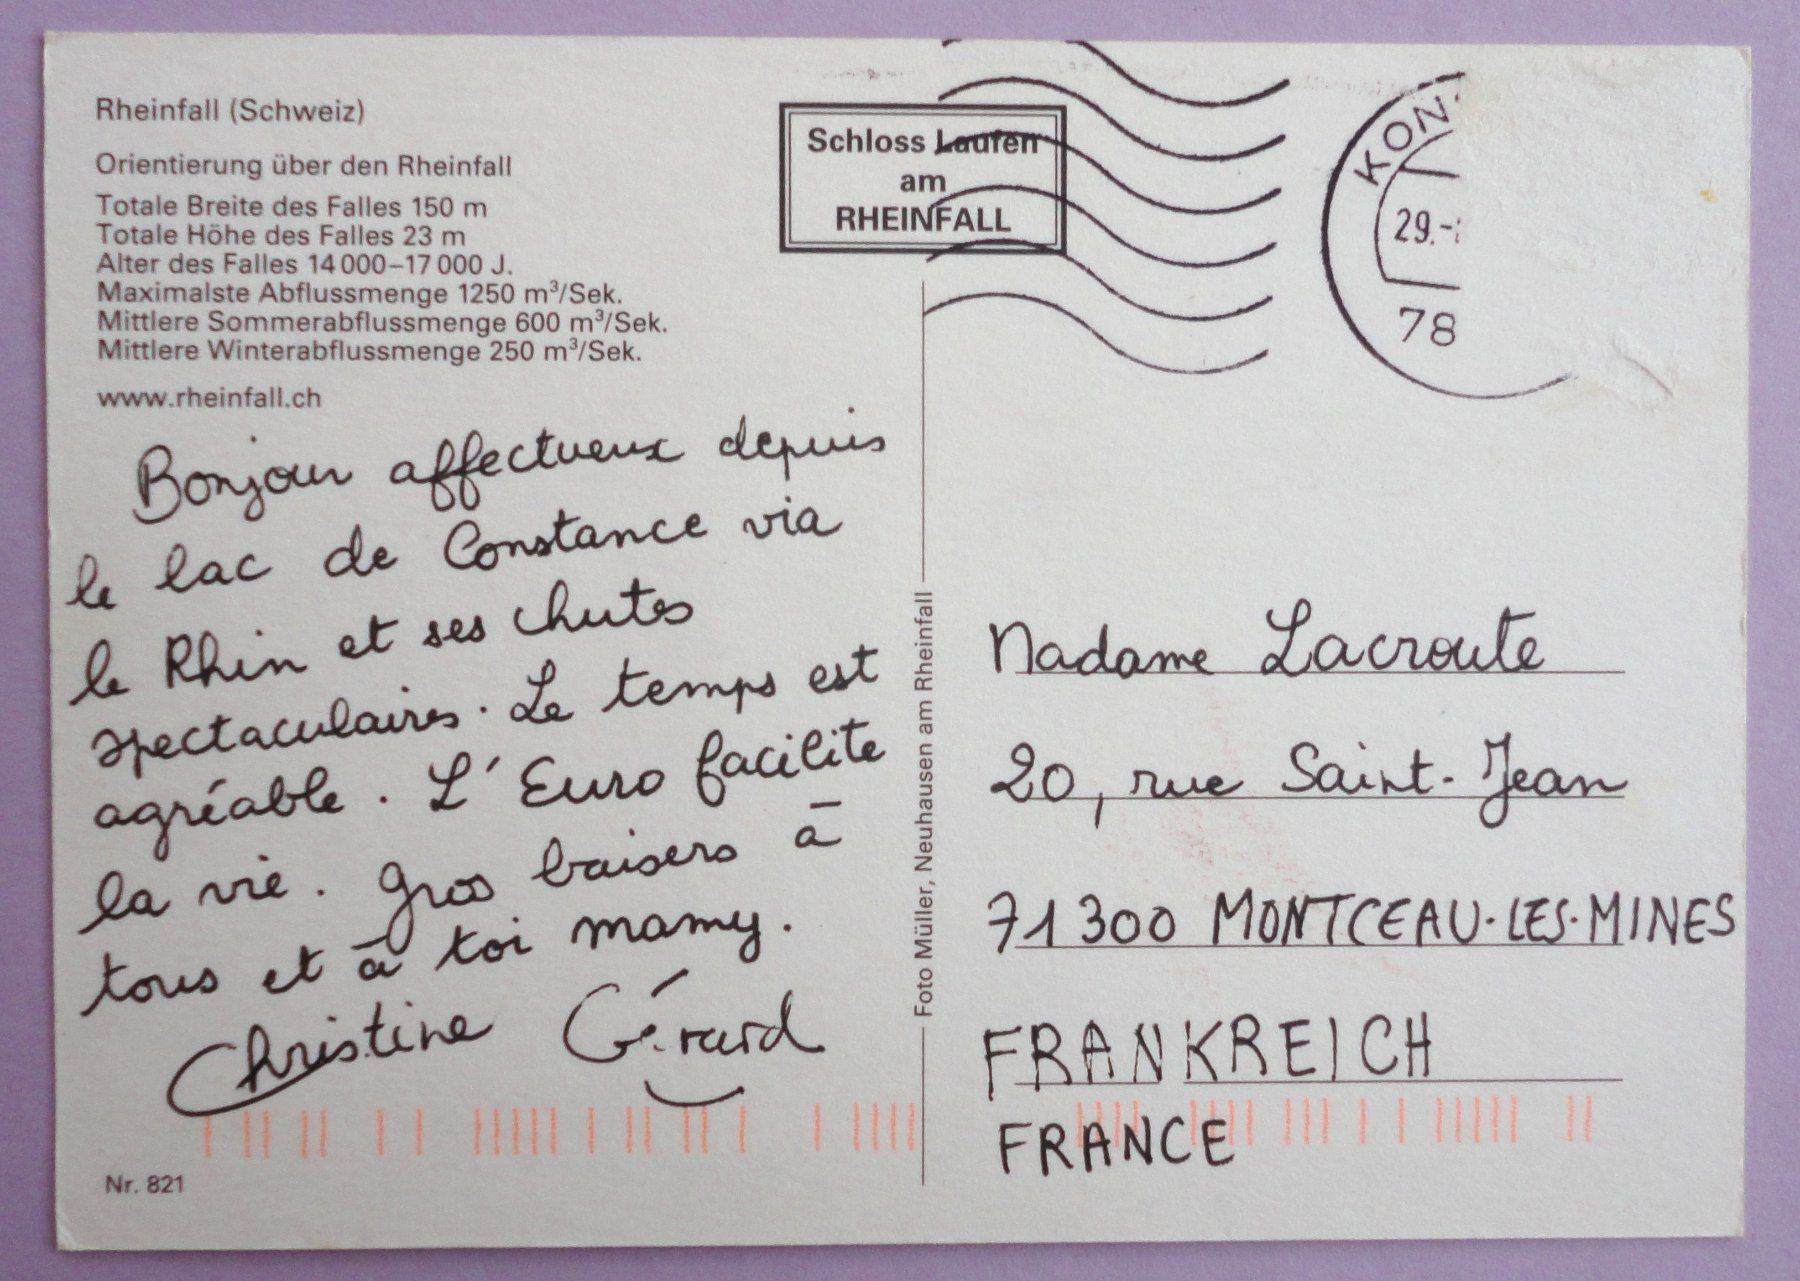 Rheinfall (Schweiz)
Orientierung über den Rheinfall
Totale Breite des Falles 150 m
Totale Höhe des Falles 23 m
Alter des Falles 14 000–17 000 J.
Maximalste Abflussmenge 1250 m³/Sek.
Mittlere Sommerabflussmenge 600 m³/Sek.
Mittlere Winterabflussmenge 250 m³/Sek.
www.rheinfall.ch
Bonjour affectueux depuis
le lac de Constance via
le Rhin et ses chutes
spectaculaires. Le temps est
agréable. L'Euro facilite
la vie. Gros baisers à
tous et à toi mamy.
Christine Gérard
Nr. 821
Schloss Laufen
am
RHEINFALL
KON
29.-
78
Foto Müller, Neuhausen am Rheinfall
Madame Lacroute
20, rue Saint-Jean
71300 MONTCEAU-LES-MINES
FRANKREICH
FRANCE